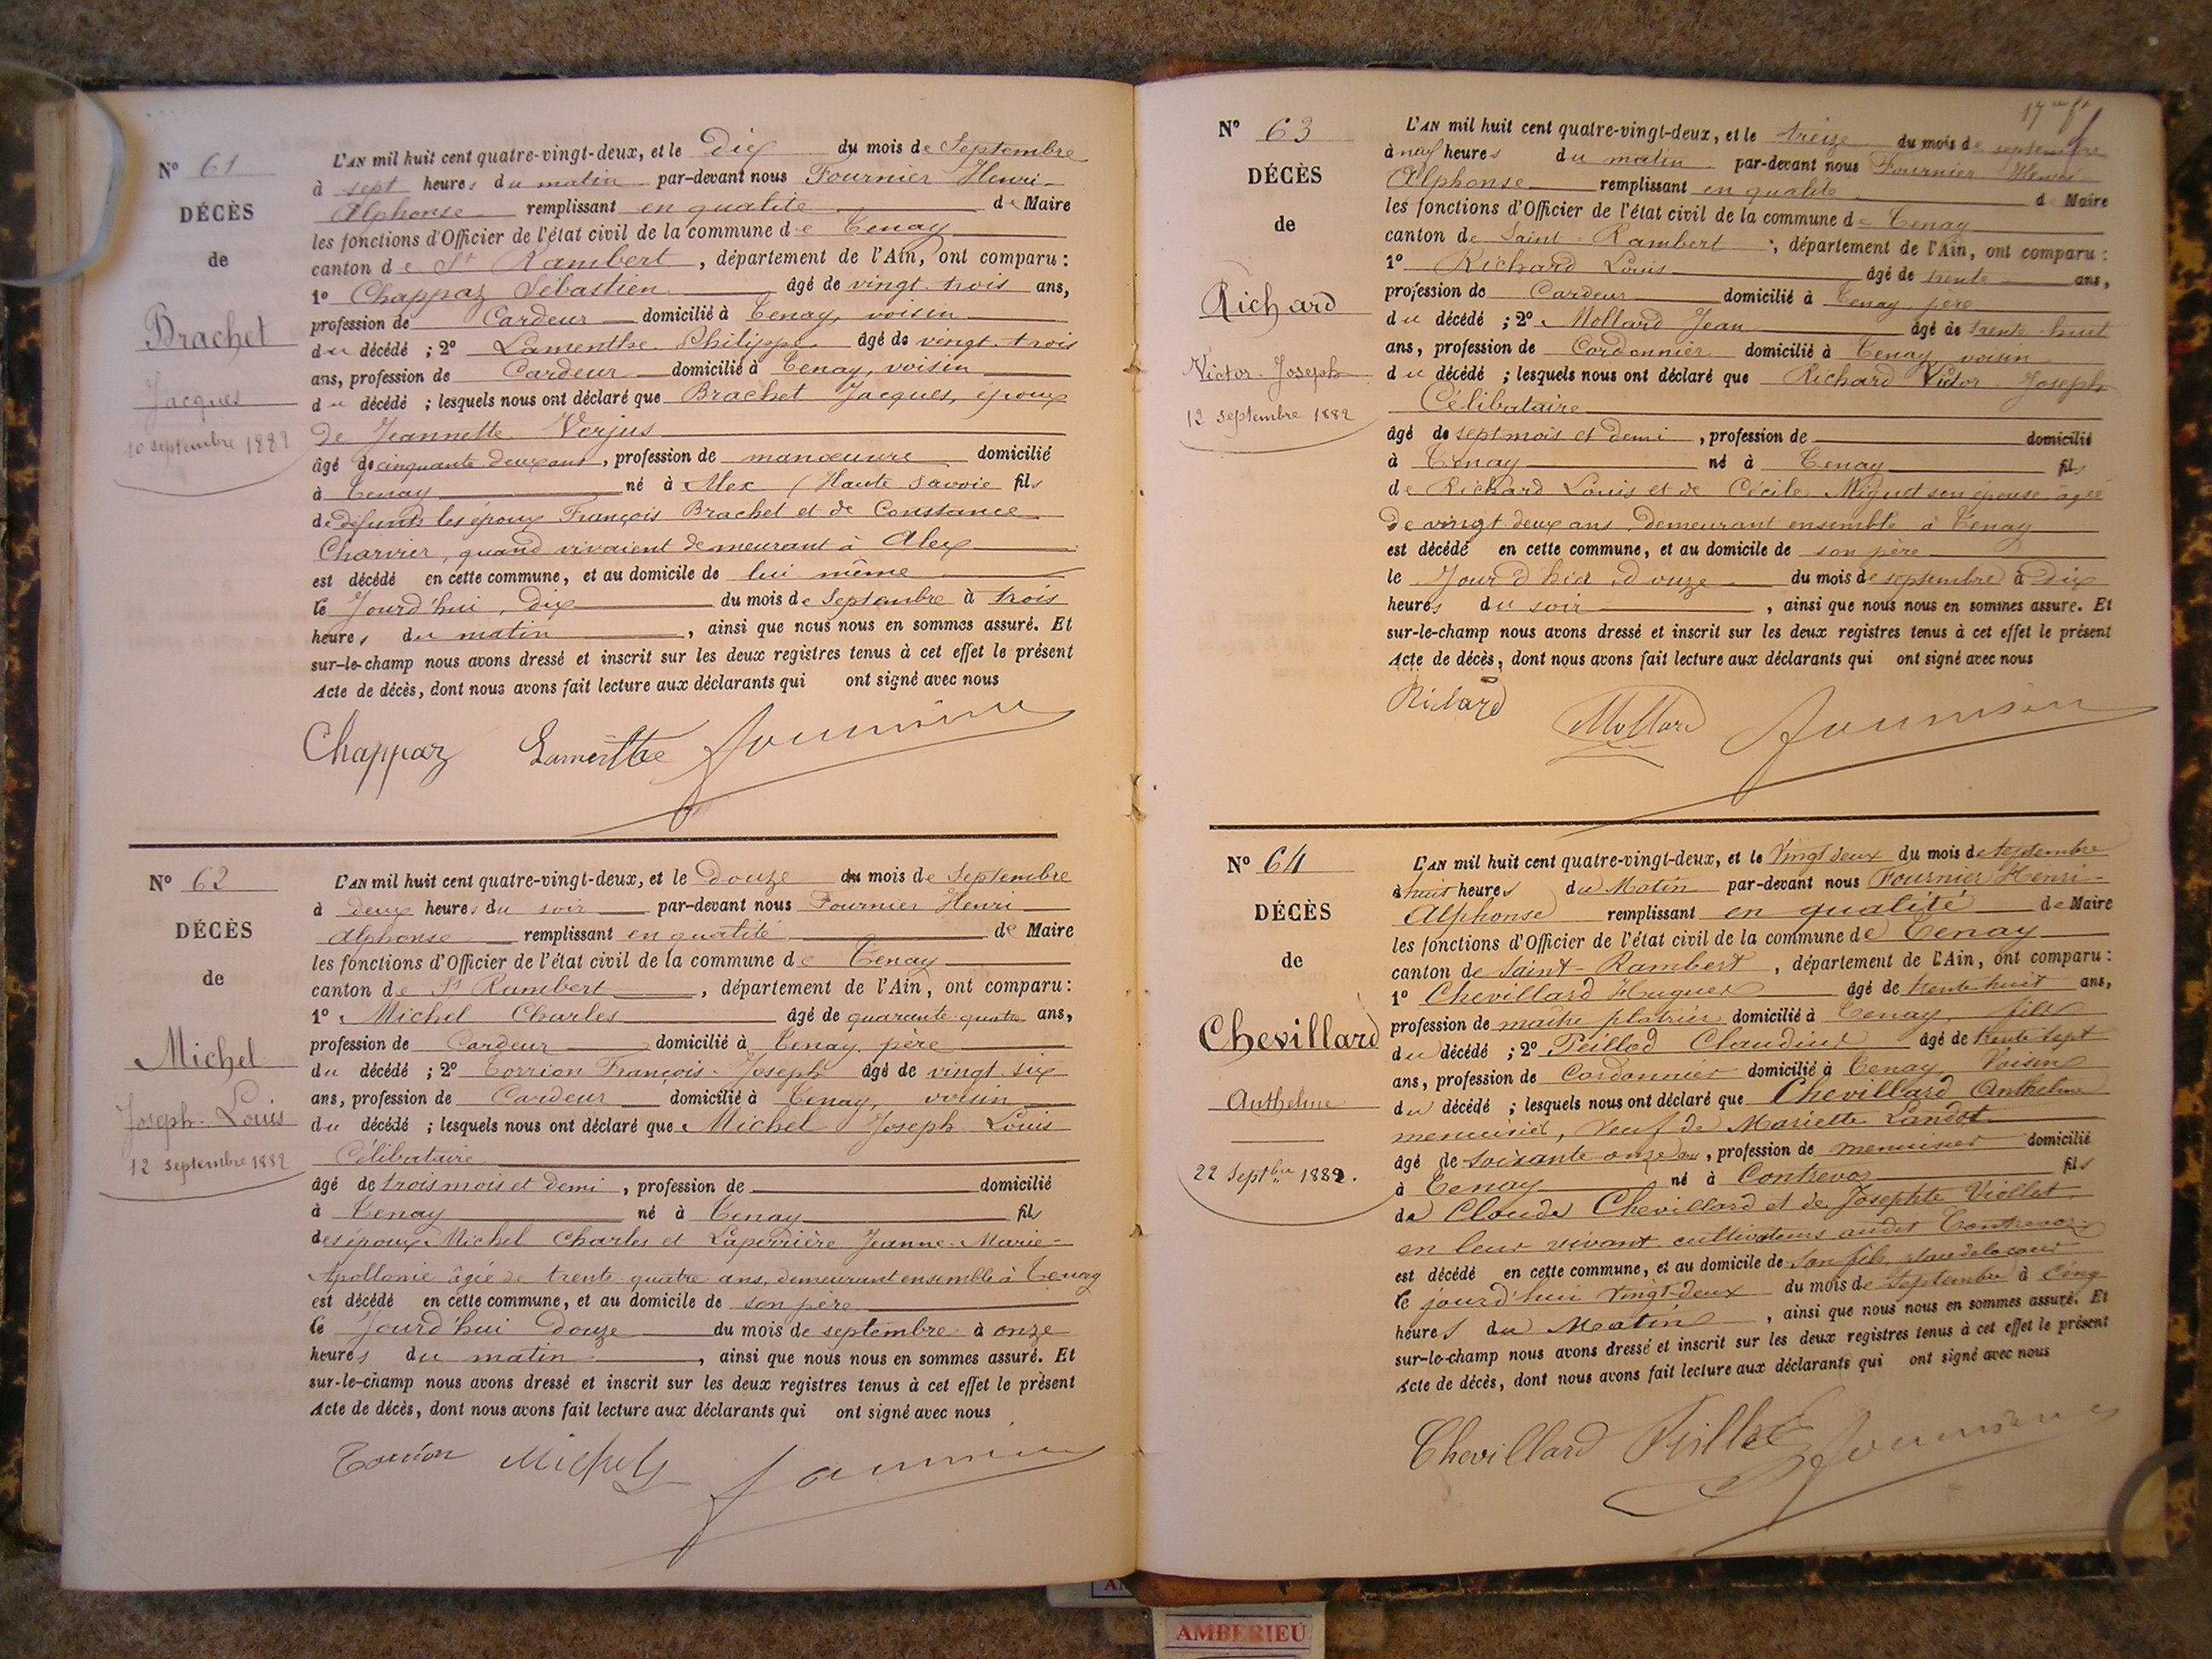 N° 61
DÉCÈS
de
Brachet
Jacques
10 septembre 1882
L'AN mil huit cent quatre-vingt-deux, et le Dix du mois de Septembre
à sept heures du matin par-devant nous Fournier Henri-
Alphonse remplissant en qualité de Maire
les fonctions d'Officier de l'état civil de la commune de Tenay
canton de St Rambert, département de l'Ain, ont comparu :
1° Chappaz Sébastien âgé de vingt-trois ans,
profession de Cardeur domicilié à Tenay, voisin
du décédé ; 2° Lamenthe Philippe âgé de vingt-trois
ans, profession de Cardeur domicilié à Tenay, voisin
du décédé ; lesquels nous ont déclaré que Brachet Jacques, époux
De Jeannette Verjus
âgé de cinquante deux ans, profession de manœuvre domicilié
à Tenay né à Alex (Haute Savoie fils
de défunts les époux François Brachet et de Constance
Charvier, quand vivaient demeurant à Alex
est décédé en cette commune, et au domicile de lui même
le Jourd'hui, dix du mois de Septembre à trois
heures du matin, ainsi que nous nous en sommes assuré. Et
sur-le-champ nous avons dressé et inscrit sur les deux registres tenus à cet effet le présent
Acte de décès, dont nous avons fait lecture aux déclarants qui ont signé avec nous
Chappaz Lamenthe Fournier
N° 62
DÉCÈS
de
Michel
Joseph-Louis
12 septembre 1882
L'AN mil huit cent quatre-vingt-deux, et le Douze du mois de Septembre
à deux heures du soir par-devant nous Fournier Henri
Alphonse remplissant en qualité de Maire
les fonctions d'Officier de l'état civil de la commune de Tenay
canton de St Rambert, département de l'Ain, ont comparu :
1° Michel Charles âgé de quarante-quatre ans,
profession de Cardeur domicilié à Tenay, père
du décédé ; 2° Torrion François-Joseph âgé de vingt-six
ans, profession de Cardeur domicilié à Tenay, voisin
du décédé ; lesquels nous ont déclaré que Michel Joseph Louis
Célibataire
âgé de trois mois et demi, profession de domicilié
à Tenay né à Tenay fils
des époux Michel Charles et Laperrière Jeanne-Marie-
Apollonie âgée de trente quatre ans, demeurant ensemble à Tenay
est décédé en cette commune, et au domicile de son père
le Jourd'hui Douze du mois de septembre à onze
heures du matin, ainsi que nous nous en sommes assuré. Et
sur-le-champ nous avons dressé et inscrit sur les deux registres tenus à cet effet le présent
Acte de décès, dont nous avons fait lecture aux déclarants qui ont signé avec nous
Torrion Michel Fournier
N° 63
DÉCÈS
de
Richard
Victor-Joseph
12 septembre 1882
L'AN mil huit cent quatre-vingt-deux, et le treize du mois de septembre
à neuf heures du matin par-devant nous Fournier Henri
Alphonse remplissant en qualité d Maire
les fonctions d'Officier de l'état civil de la commune de Tenay
canton de Saint-Rambert, département de l'Ain, ont comparu :
1° Richard Louis âgé de trente ans,
profession de Cardeur domicilié à Tenay, père
du décédé ; 2° Mollard Jean âgé de trente-huit
ans, profession de Cordonnier domicilié à Tenay, voisin
du décédé ; lesquels nous ont déclaré que Richard Victor-Joseph
Célibataire
âgé de sept mois et demi, profession de domicilié
à Tenay né à Tenay fils
de Richard Louis et de Cécile Miguet son épouse, âgée
De vingt deux ans, demeurant ensemble à Tenay
est décédé en cette commune, et au domicile de son père
le Jour d'hier, douze du mois de septembre à Dix
heures du soir, ainsi que nous nous en sommes assuré. Et
sur-le-champ nous avons dressé et inscrit sur les deux registres tenus à cet effet le présent
Acte de décès, dont nous avons fait lecture aux déclarants qui ont signé avec nous
Richard Mollard Fournier
N° 64
DÉCÈS
de
Chevillard
Anthelme
22 Septbre 1882.
L'AN mil huit cent quatre-vingt-deux, et le Vingt deux du mois de septembre
à huit heures du Matin par-devant nous Fournier Henri-
Alphonse remplissant en qualité de Maire
les fonctions d'Officier de l'état civil de la commune de Tenay
canton de Saint-Rambert, département de l'Ain, ont comparu :
1° Chevillard Hugues âgé de trente huit ans,
profession de maître plâtrier domicilié à Tenay, fils
du décédé ; 2° Peillod Claudius âgé de trente sept
ans, profession de Cordonnier domicilié à Tenay Voisin
du décédé ; lesquels nous ont déclaré que Chevillard Anthelme
menuisier, Veuf de Mariette Landot
âgé de soixante onze ans, profession de menuisier domicilié
à Tenay né à Contrevoz fils
de Claude Chevillard et de Josephte Viollet
en leur vivant cultivateurs audit Contrevoz
est décédé en cette commune, et au domicile de son fils, place de la cour
le jourd'hui Vingt-deux du mois de Septembre à Cinq
heures du Matin, ainsi que nous nous en sommes assuré. Et
sur-le-champ nous avons dressé et inscrit sur les deux registres tenus à cet effet le présent
Acte de décès, dont nous avons fait lecture aux déclarants qui ont signé avec nous
Chevillard Peillod Fournier
AMBERIEU